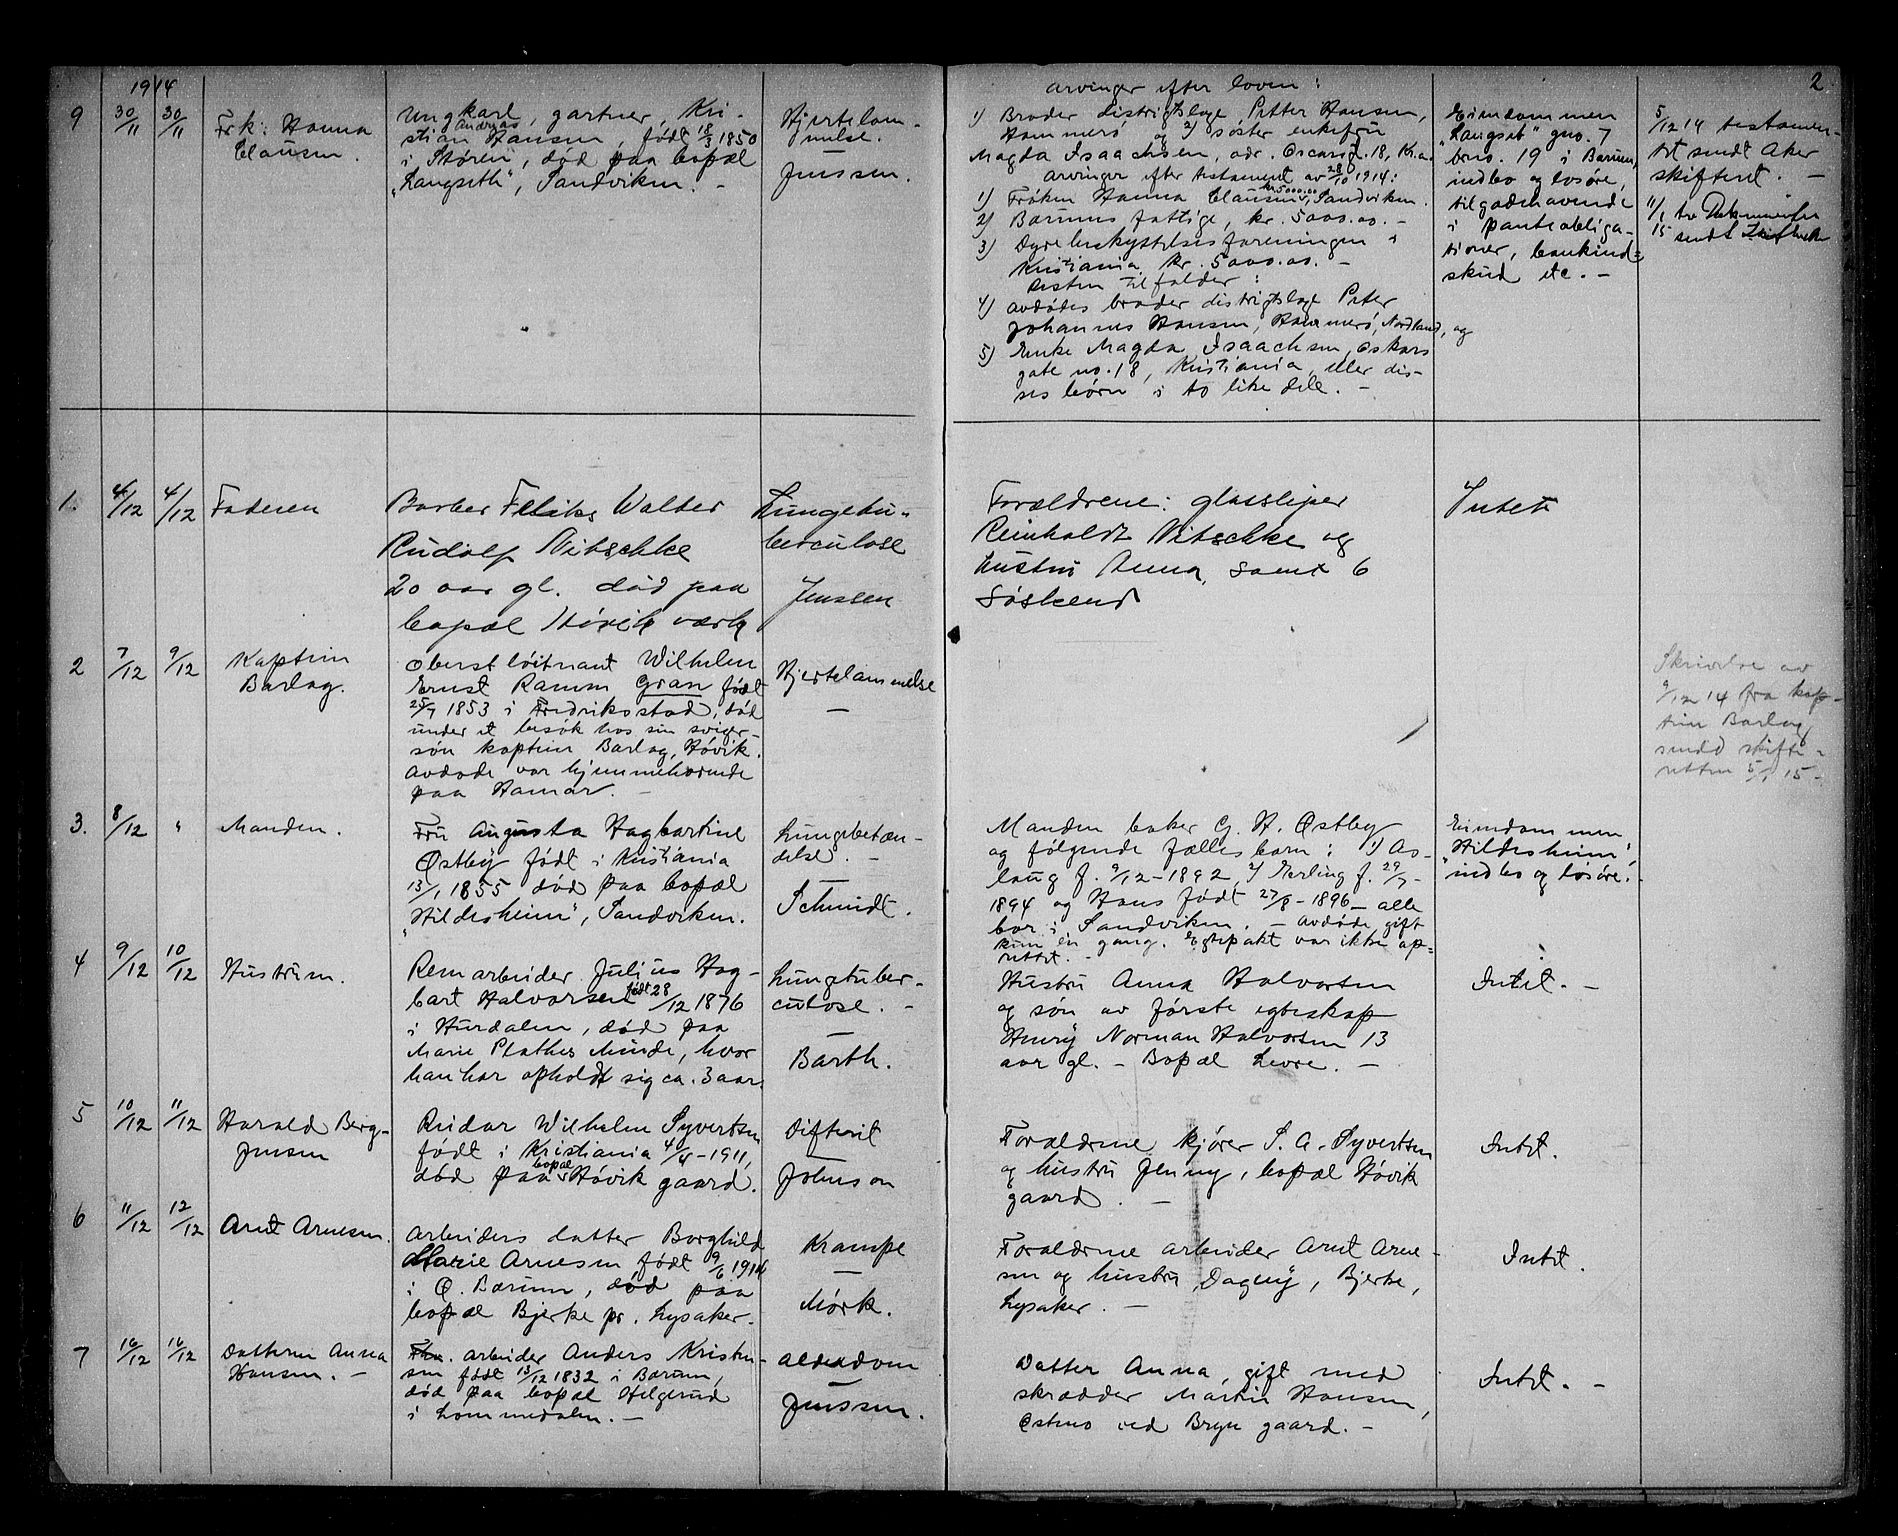 1914
2
9
30/11
30/11
Frk: Hanna
Clausen.
Ungkarl, gartner, Kri-
stian Andreas Hansen, født 18/3 1850
i Støren, død paa bopæl
"Langseth", Sandviken. -
Hjertelam-
melse.
Jenssen.
arvinger efter loven:
1) Broder distriktslæge, Petter Hansen,
Hammerø og 2) søster enkefru
Magda Isaachsen, adr. Oscarsgt. 18, Kr.a.
arvinger efter testament av 28/10 1914:
1) Frøken Hanna Clausen, kr 5000.00 Sandviken.
2) Bærums fattige, kr. 5000.00. -
3) Dyrebeskyttelsesforeningen i
Kristiania kr. 5000.00. -
Resten tilfalder:
4) avdødes broder distriktslæge Peter
Johannes Hansen, Hammerø, Nordland, og
5) Enke Magda Isaachsen, Oskars
gate no. 18, Kristiania, eller dis-
ses børn i to like dele. -
Eiendommen
"Langset" gno. 7
brno. 19 i Bærum,
indbo og løsøre,
tilgodehavende
i panteobliga-
tioner, bankind-
skud etc. -
5/12 14 testamen-
tet sendt Aker
skifteret. -
11/1 15
sendt
1.
4/12
4/12
Faderen
Barber Feliks Walter
Rudolf Nitschke
20 aar gl. død paa
bopæl Høvik værk
Lungetu-
berculose
Jenssen
Forældrene: glassliper
Reinholdt Nitschke og
hustru Anna, samt 6
søskend
Intet
2
7/12
9/12
Kaptein
Barlag.
Oberstløitnant Wilhelm
Ernst Ramm Gran født
25/7 1853 i Fredriksstad, død
under et besøk hos sin sviger-
søn kaptein Barlag, Høvik.
Avdøde var hjemmehørende
paa Hamar. -
Hjertelammelse
-
Skrivelse av
9/12 14 fra kap-
tein Barlag
sendt skifte-
retten 5/1 15 -
3.
8/12
"
Manden.
Fru Augusta Hagbartine
Østby født i Kristiania
13/1 1855 død paa bopæl
"Hildesheim", Sandviken.
Lungebetæn-
delse. -
Schmidt.
Manden baker G. H. Østby
og følgende fælles barn: 1) As-
laug f. 9/12 - 1892 2) Erling f. 29/7 -
1894 og Hans født 27/8 - 1896 - alle
bor i Sandviken. - avdøde gift
kun én gang. Egtepakt var ikke op-
rettet. -
Eiendommen
"Hildesheim",
indbo og løsøre. -
4
9/12
10/12
Hustruen.
Remarbeider Julius Hag-
bart Halvorsen født 28/12 1876
i Hurdalen, død paa
Marie Plathes Minde, hvor
han har opholdt sig ca. 3 aar.
Lungetuber-
culose. -
Barth.
Hustru Anna Halvorsen
og søn av første egteskap
Henry Norman Halvorsen 13
aar gl. - Bopæl Levre. -
Intet. -
5
10/12
11/12
Harald Berg-
Jensen
Reidar Wilhelm Syvertsen
født i Kristiania 4/4 - 1911,
død paa bopæl Høvik gaard.
Difterit
Johnson
Forældrene kjører S. A. Syvertsen
og hustru Jenny, bopæl Høvik
gaard. -
Intet.
6
11/12
12/12
Arnt Arnesen.
Arbeiders datter Borghild
Marie Arnesen født 9/6 1914
i Ø. Bærum, død paa
bopæl Bjerke pr. Lysaker.
Krampe
-
Mørk.
Forældrene arbeider Arnt Arne-
sen og hustru Dagny, Bjerke,
Lysaker. -
Intet.
7
16/12
16/12
Datteren Anna
Hansen. -
Fhv. arbeider Anders Kristen-
sen født 13/12 1832 i Bærum,
død paa bopæl Helgerud
i Lommedalen. -
Alderdom
Jenssen.
Datter Anna, gift med
skrædder Martin Hansen,
Østmo ved Bryn gaard. -
Intet. -